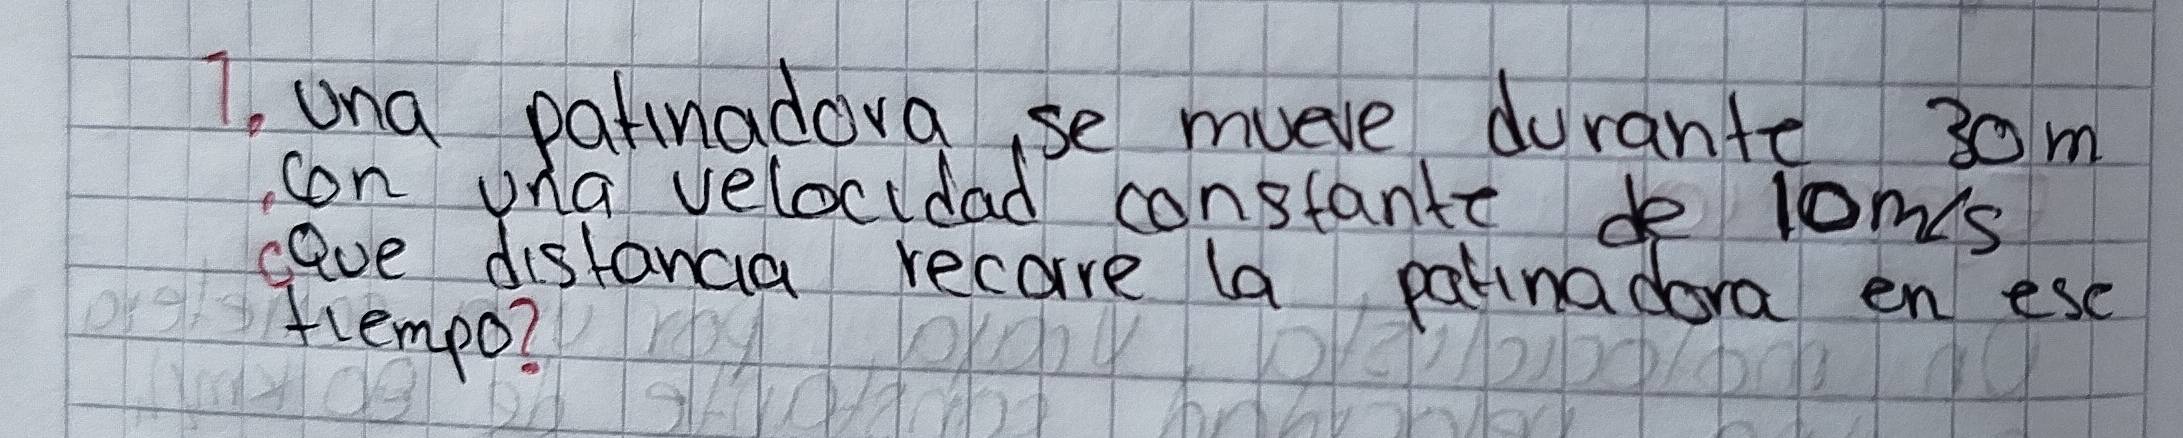 1. Una patinadora, se mueve durante 30m
.con una velocidad constante de 10m/s
¿Que distancia recorre la patinadora en ese
tiempo?